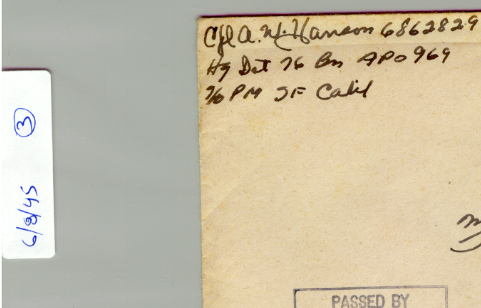 Cpl A. M. Hanson 6862829
Hq Det 76 Bn APO 969
℅ PM SF Calif
6/8/45 ③
PASSED BY